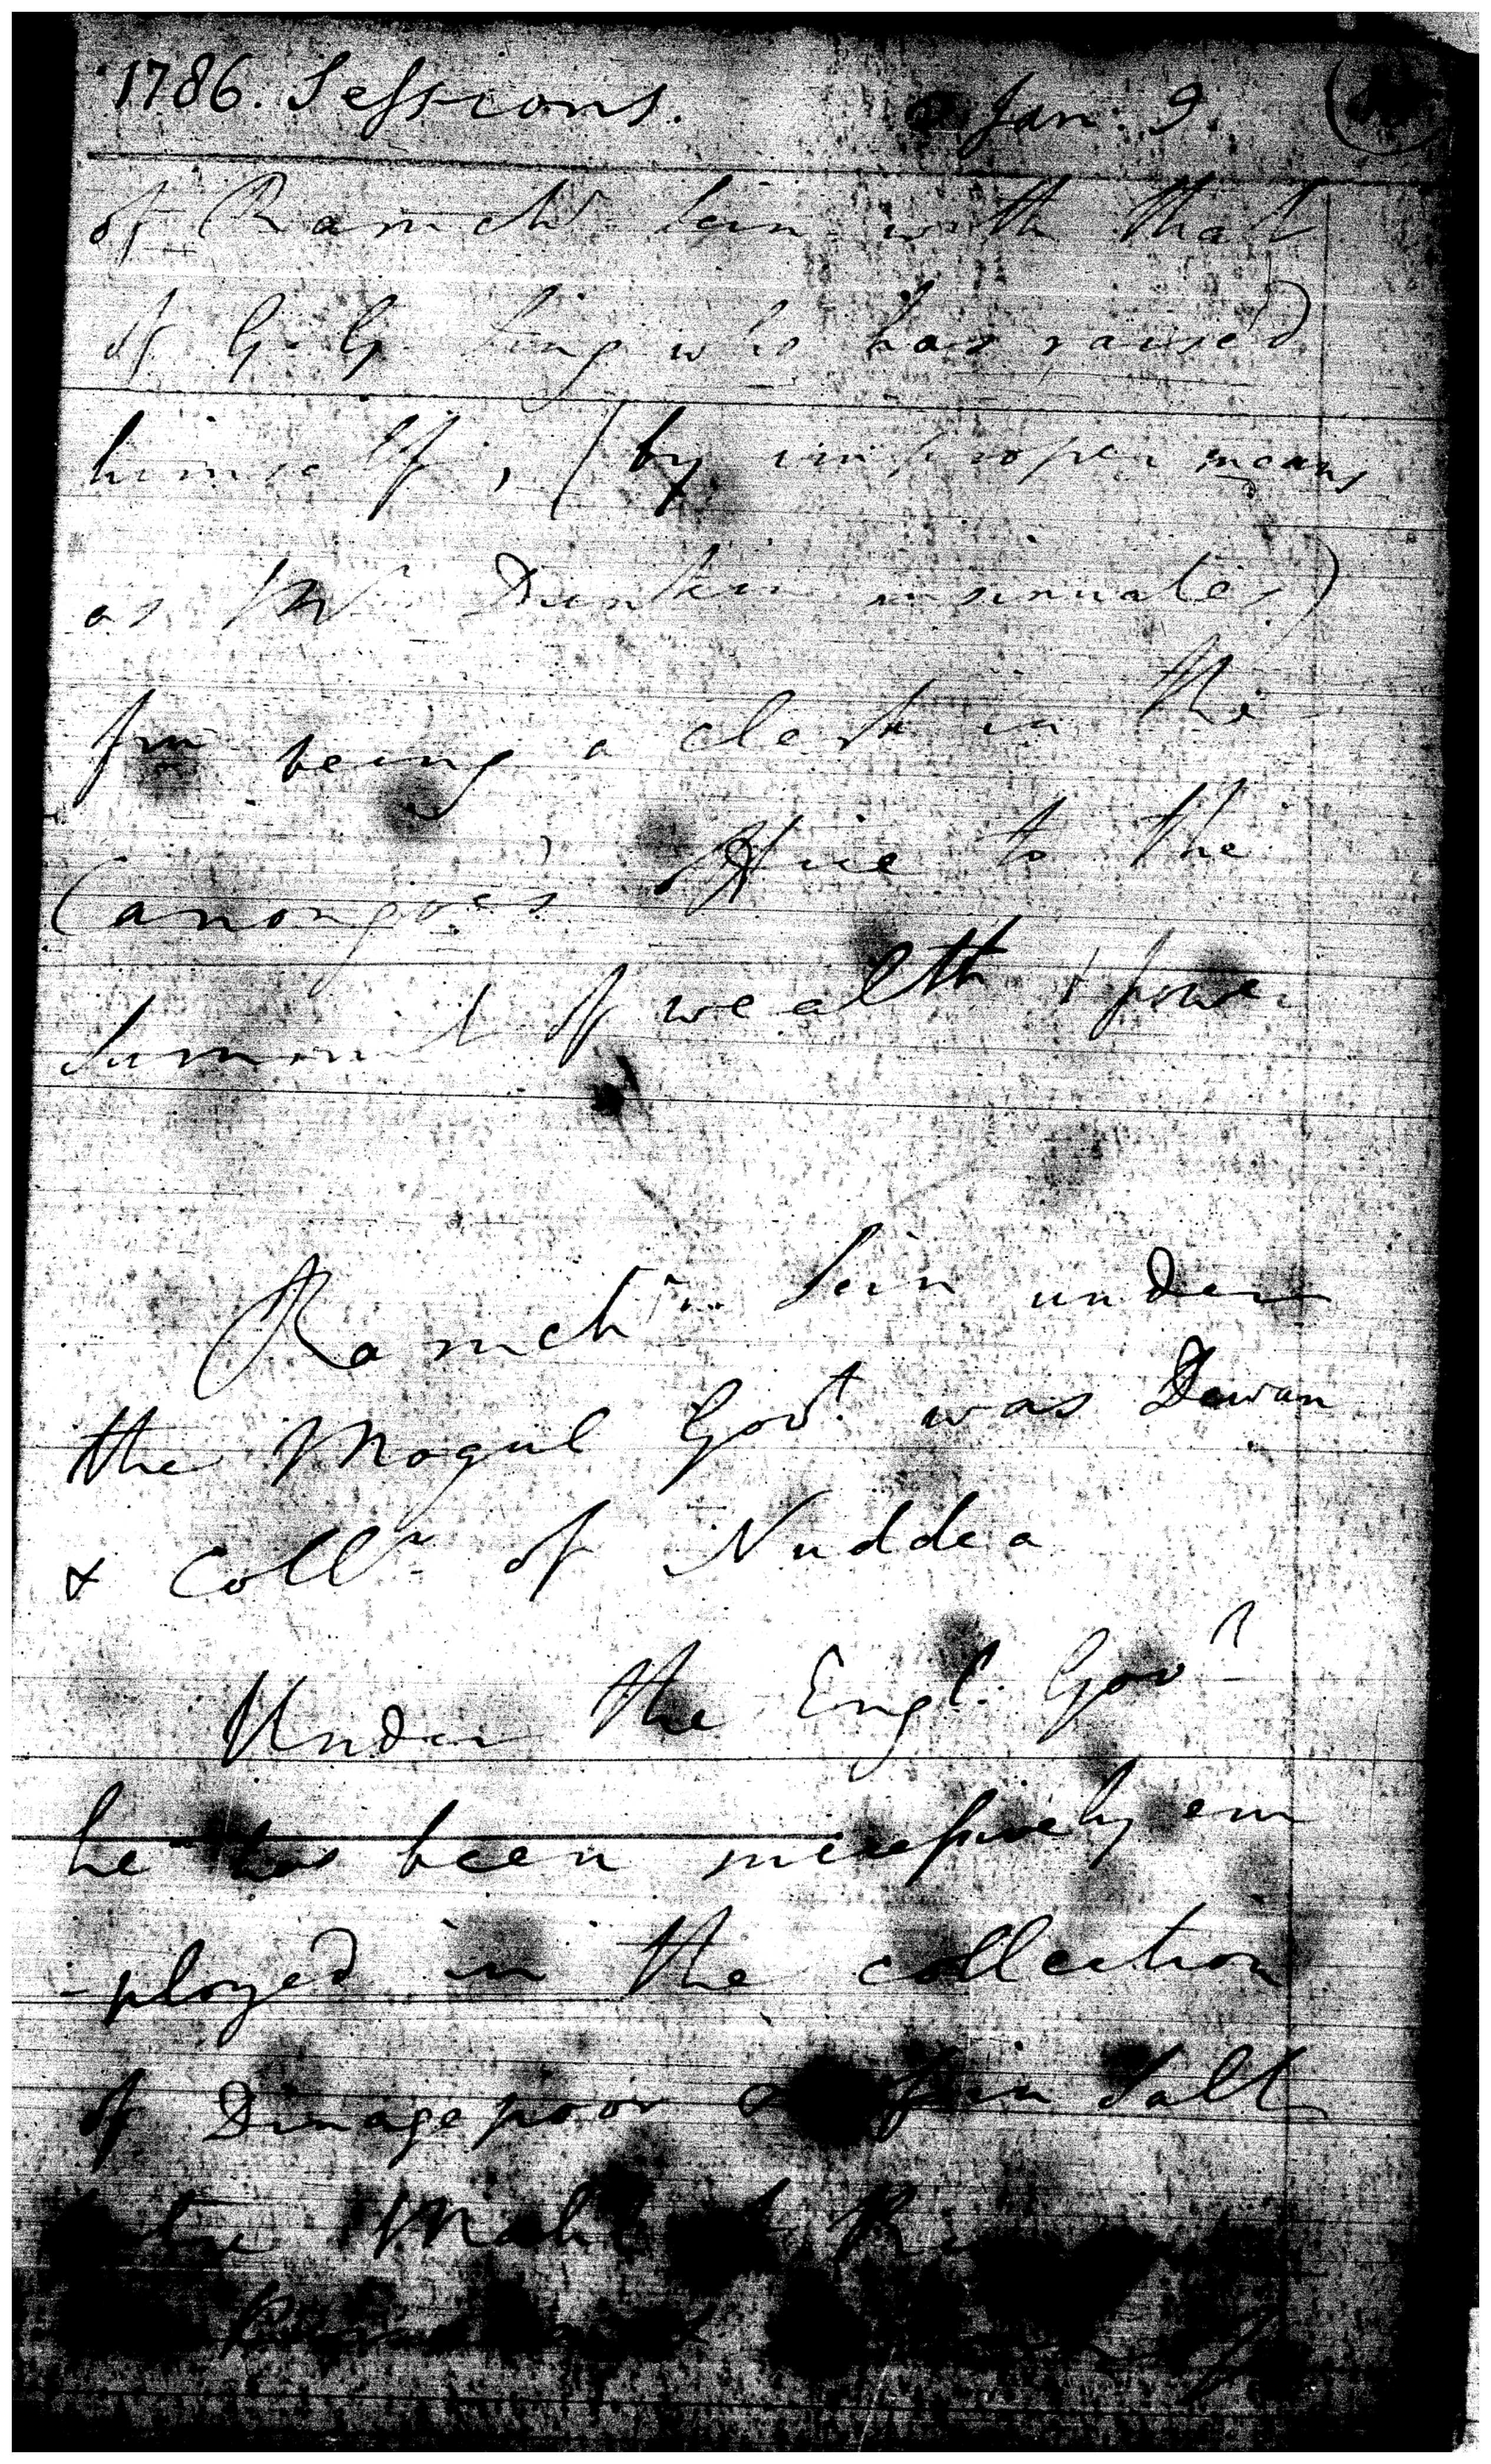 1786. Sessions. Jan. 9.
of Ramchr. Sein with that
of G. G. Sing who has raised
himself, (by improper means
as Mr. Dunkin insinuates)
from being a clerk in the
Canongoes' Office to the
Summit of wealth & power
Ramchn. Sein under
the Mogul Govt. was Dewan
& Collr. of Nuddea
Under the Engl. Govt.
he has been successively em
-ployed in the collection
of Dinagepoor & Salt
Mahl